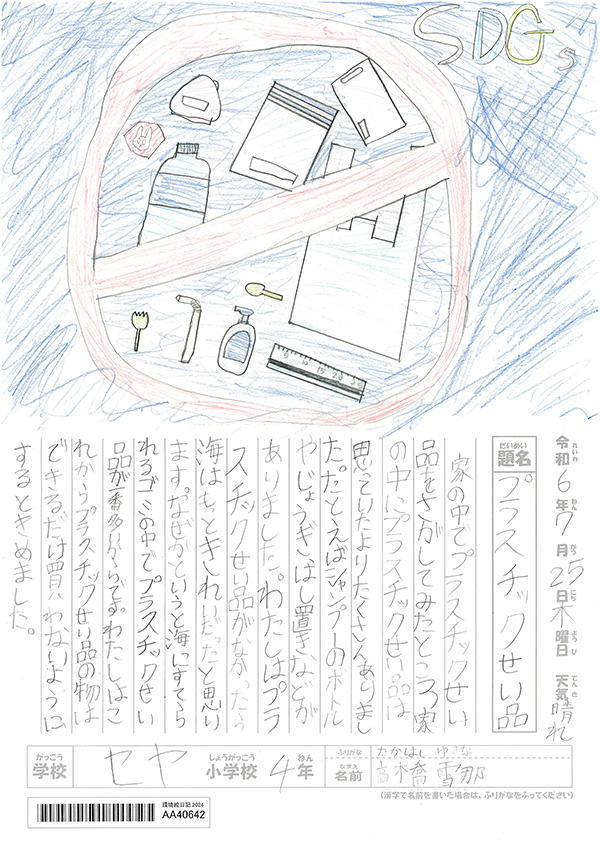 SDGs
5 10 15 20 25 30
令和6年7月25日木曜日 天気 晴れ
れいわ ねん がつ にち ようび てんき
だいめい
題名 プラスチックせい品
家の中でプラスチックせい
品をさがしてみたところ家
の中にプラスチックせい品は
思っていたよりたくさんありまし
た。たとえばシャンプーのボトル
やじょうぎ、はし置きなどが
ありました。わたしはプラ
スチックせい品がなかったら
海はもっときれいだったと思い
ます。なぜかというと海にすてら
れるゴミの中でプラスチックせい
品が一番多いからです。わたしはこ
れからプラスチックせい品の物は
できるだけ買わないように
するときめました。
がっこう しょうがっこう ねん ふりがな たかはし ゆきな
学校 セヤ 小学校 4年 なまえ 名前 高橋 雪那
(漢字で名前を書いた場合は、ふりがなをふってください)
環境絵日記 2024
AA40642